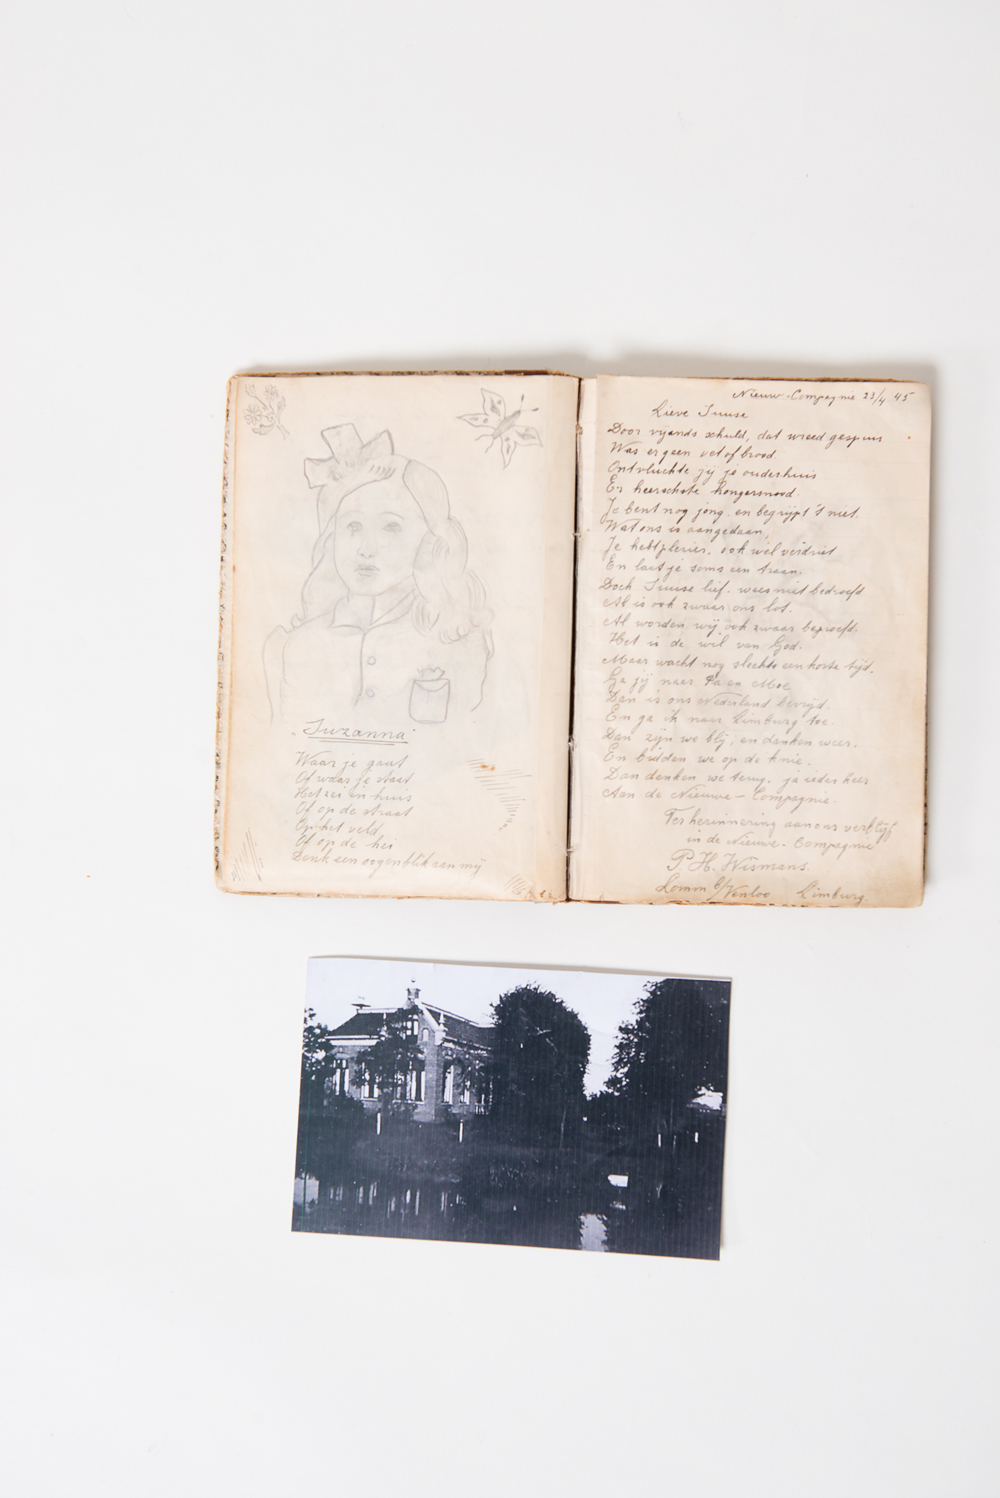 "Suzanna"
Waar je gaat
Of waar je staat
Het zei in huis
Of op de straat
Op het veld
Of op de hei
Denk een oogenblik aan mij
Nieuw-Compagnie 23/4 45
Lieve Suuse
Door vijands schuld, dat wreed gespuis
Was er geen vet of brood.
Ontvluchte jij je ouderhuis
Er heerschte hongersnood.
Je bent nog jong, en begrijpt 't niet.
Wat ons is aangedaan,
Je hebt plezier, ook wel verdriet
En laat je soms een traan.
Doch Suuse lief, wees niet bedroefd
Al is ook zwaar ons lot.
Al worden wij ook zwaar beproefd.
Het is de wil van God.
Maar wacht nog slechts een korte tijd.
Ga jij naar Pa en Moe
Dan is ons Nederland bevrijd.
En ga ik naar Limburg toe.
Dan zijn we blij, en danken weer.
En bidden we op de knie.
Dan denken we terug, ja ieder keer
Aan de Nieuwe-Compagnie.
Ter herinnering aan ons verblijf
in de Nieuwe-Compagnie
P. H. Wismans.
Lomm b/Venloo Limburg.